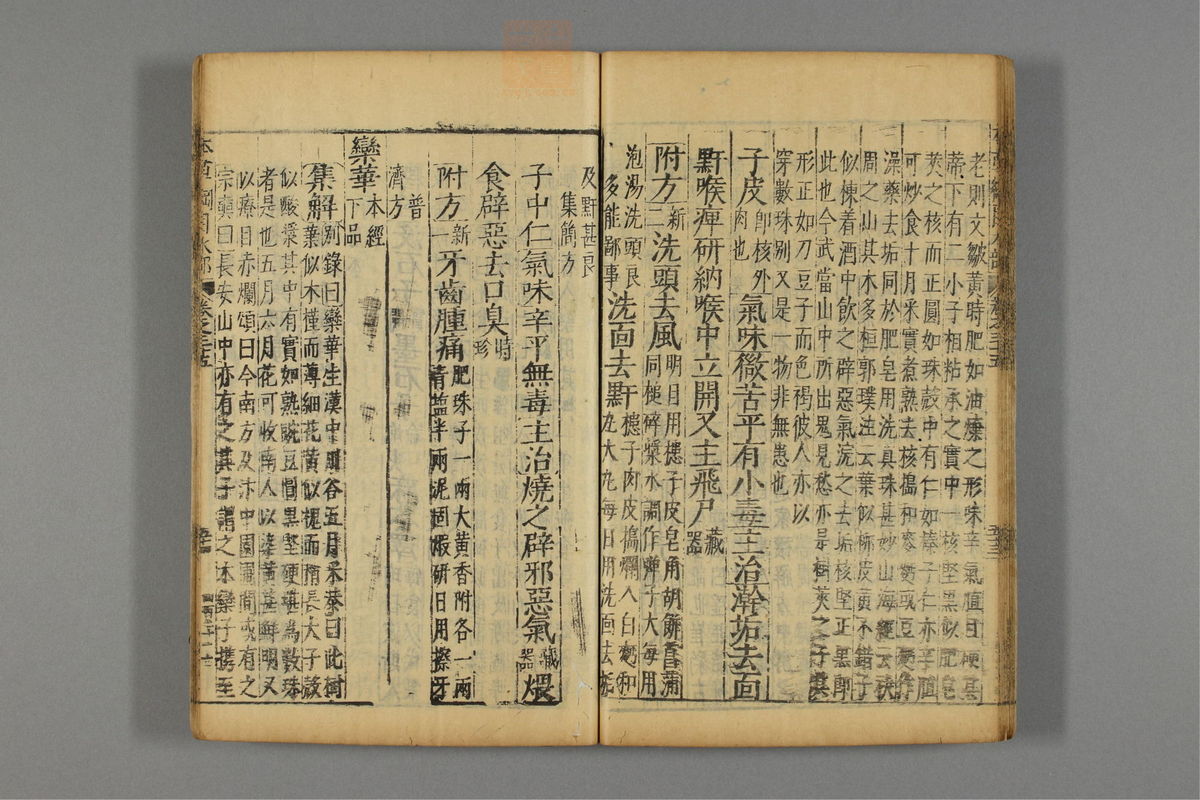 老則文皺黃時肥如油煠之形味辛氣膻且硬其
蒂下有二小子相粘承之實中一核堅黑似肥皂
莢之核而正圓如珠殼中有仁如榛子仁亦辛膻
可炒食十月采實煮熟去核搗和麥麪或豆麪作
澡藥去垢同於肥皂用洗真珠甚妙山海經云秩
周之山其木多桓郭璞注云葉似柳皮黃不錯子
似楝着酒中飲之辟惡氣浣之去垢核堅正黑即
此也今武當山中所出鬼見愁亦是樹莢之子其
形正如刀豆子而色褐彼人亦以
穿數珠别又是一物非無患也
子皮即核外肉也氣味微苦平有小毒主治澣垢去面
䵟喉痺研納喉中立開又主飛尸藏器
附方新二洗頭去風明目用槵子皮皂角胡餅菖蒲
同槌碎漿水調作彈子大每用
泡湯洗頭良
多能鄙事洗面去䵟槵子肉皮搗爛入白麪和
丸大丸每日用洗面去垢
及䵟甚良
集簡方
子中仁氣味辛平無毒主治燒之辟邪惡氣藏器煨
食辟惡去口臭時珍
附方新一牙齒腫痛肥珠子一兩大黃香附各一兩
青鹽半兩泥固煅研日用擦牙
普
濟方
欒華本經下品
集解别錄曰欒華生漢中川谷五月采恭曰此樹
葉似木槿而薄細花黃似槐而稍長大子殼
似酸漿其中有實如熟豌豆圓黑堅硬堪為數珠
者是也五月六月花可收南人以染黃甚鮮明又
以療目赤爛頌曰今南方及汴中園圃間或有之
宗奭曰長安山中亦有之其子謂之木欒子携至
本草綱目木部 卷之三十五